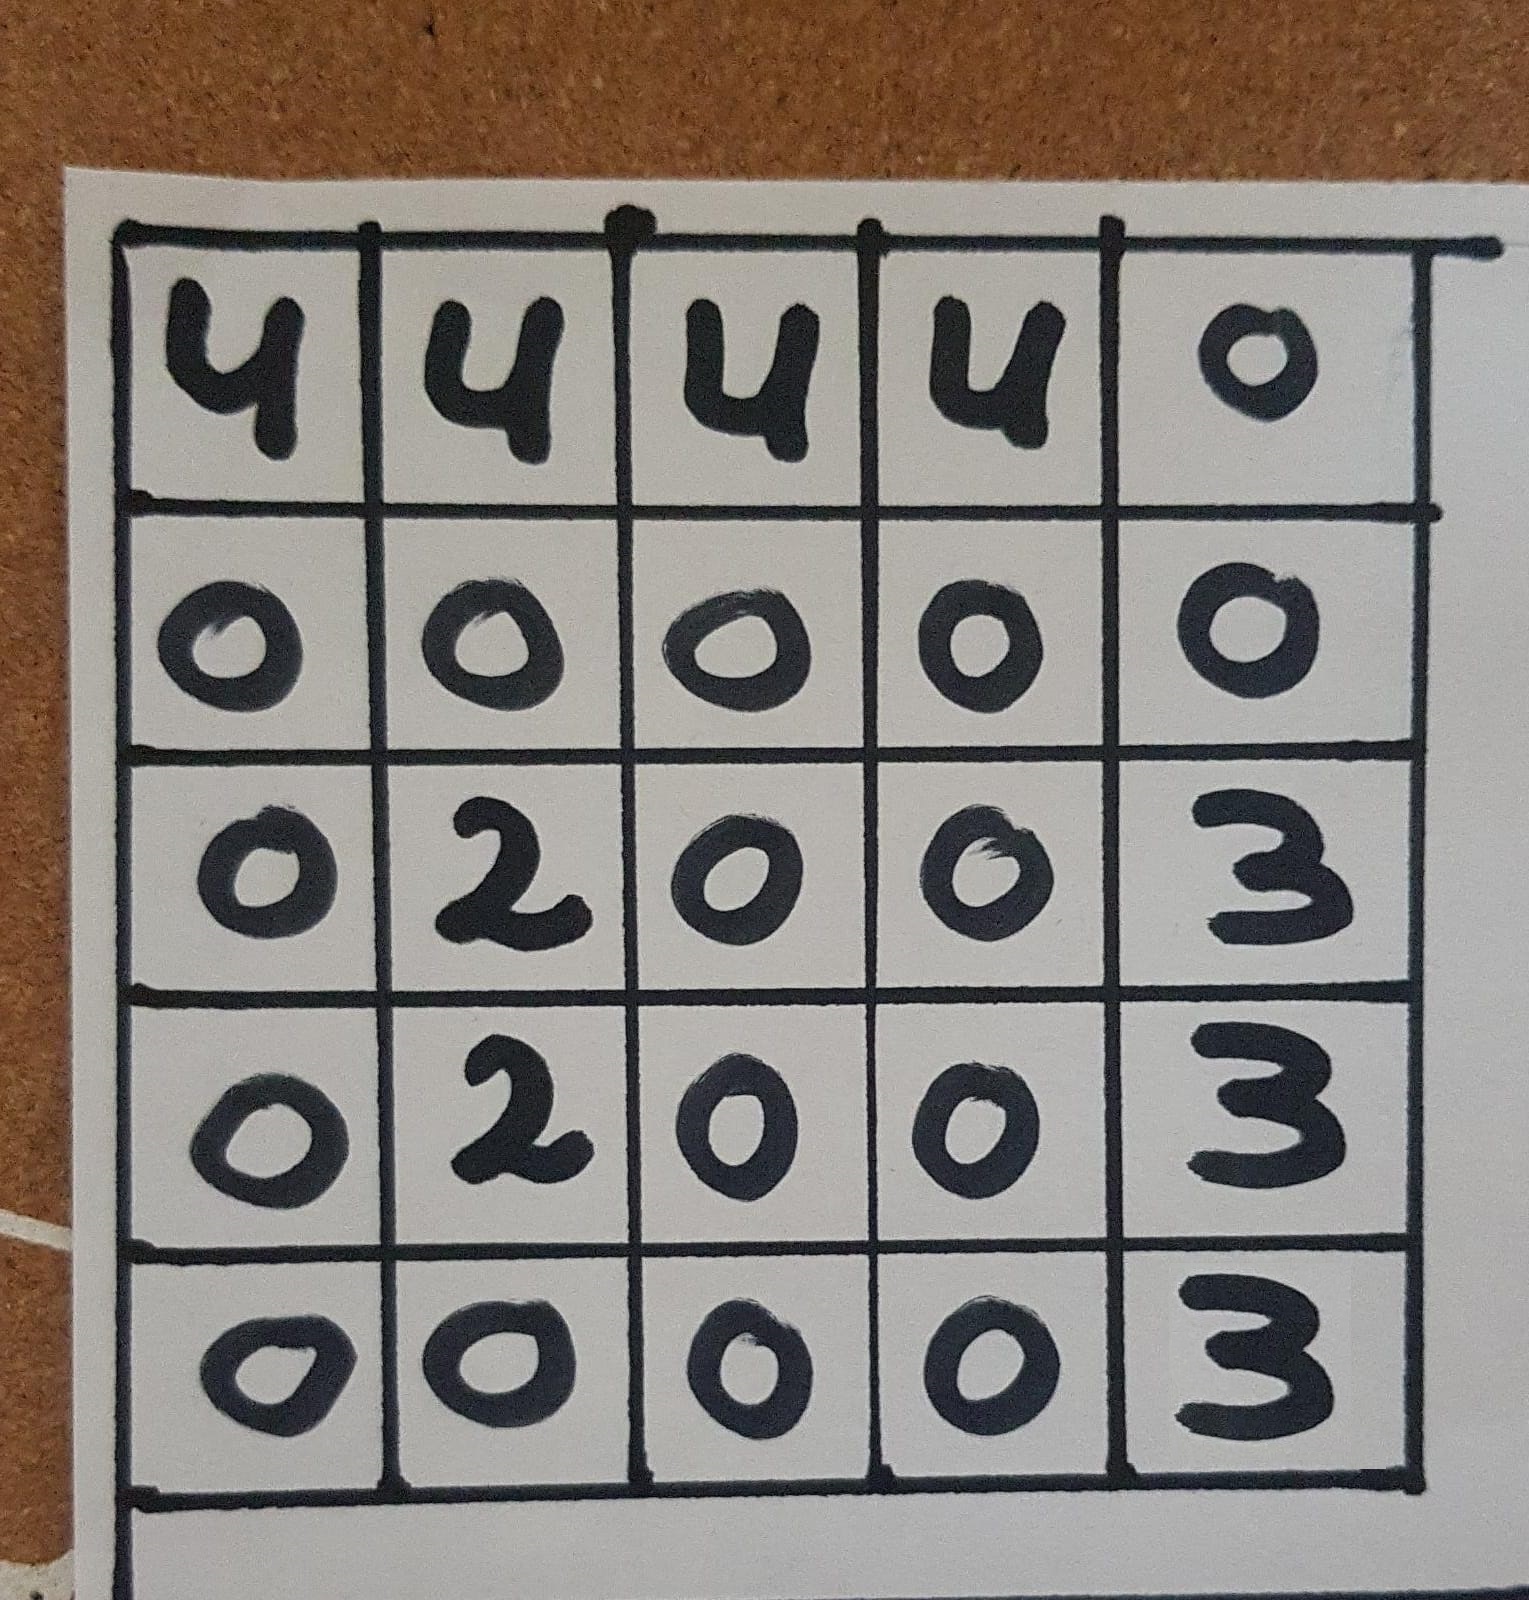 4 4 4 4 0
0 0 0 0 0
0 2 0 0 3
0 2 0 0 3
0 0 0 0 3